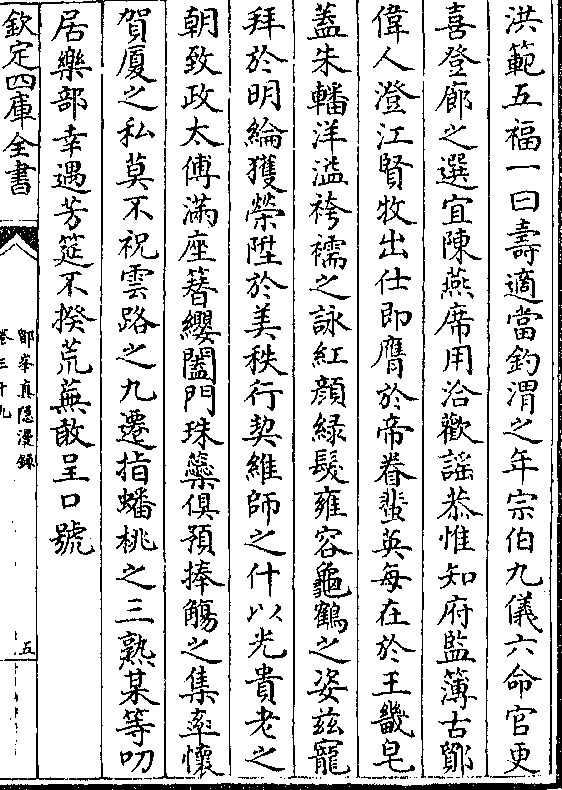 洪範五福一曰壽適當釣渭之年宗伯九儀六命官更
喜登廊之選宜陳燕席用洽歡謡恭惟知府監簿古鄮
偉人澄江賢牧出仕即膺於帝眷蜚英每在於王畿皂
蓋朱轓洋溢袴襦之詠紅顔緑鬂雍容龜鶴之姿兹寵
拜於明綸獲榮陞於美秩行契維師之什以光貴老之
朝致政太傅滿座簪纓闔門珠蘂俱預捧觴之集率懷
賀厦之私莫不祝雲路之九遷指蟠桃之三熟某等叨
居樂部幸遇芳筵不揆荒蕪敢呈口號
欽定四庫全書
鄮峯真隱漫録
卷三十九
五